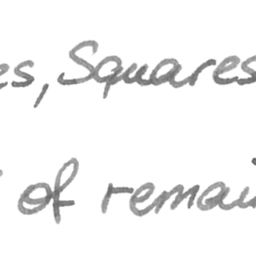 es, Squares
of remain